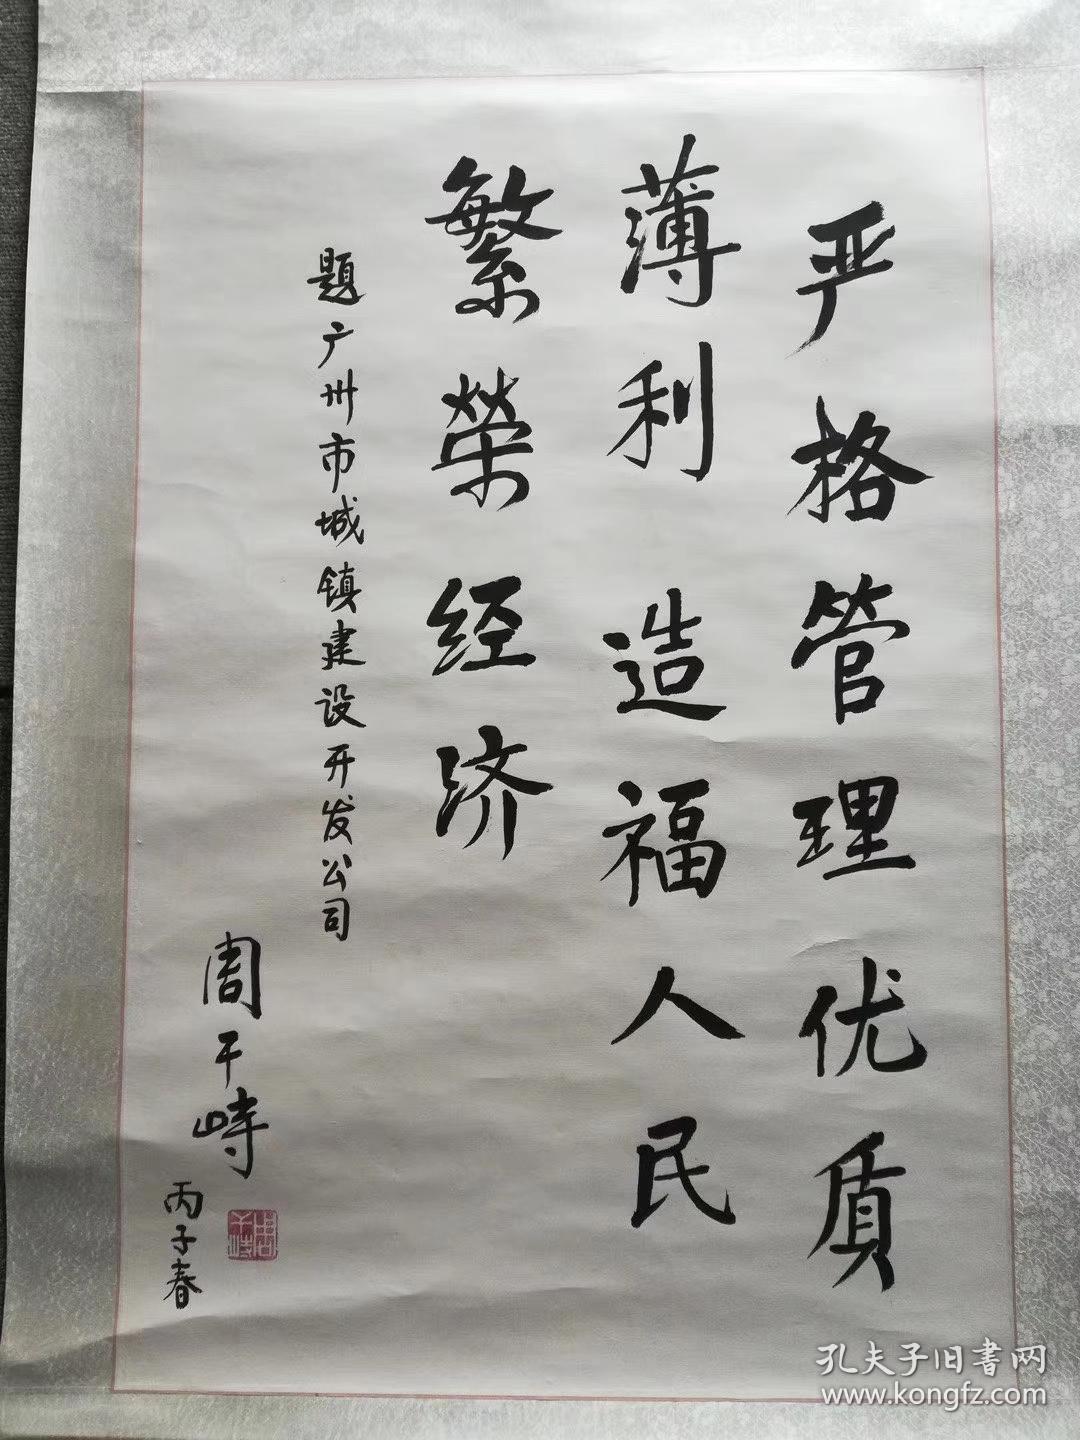 严格管理优质
薄利造福人民
繁荣经济
题广州市城镇建设开发公司
周干峙
丙子春
周干峙
孔夫子旧書网
www.kongfz.com